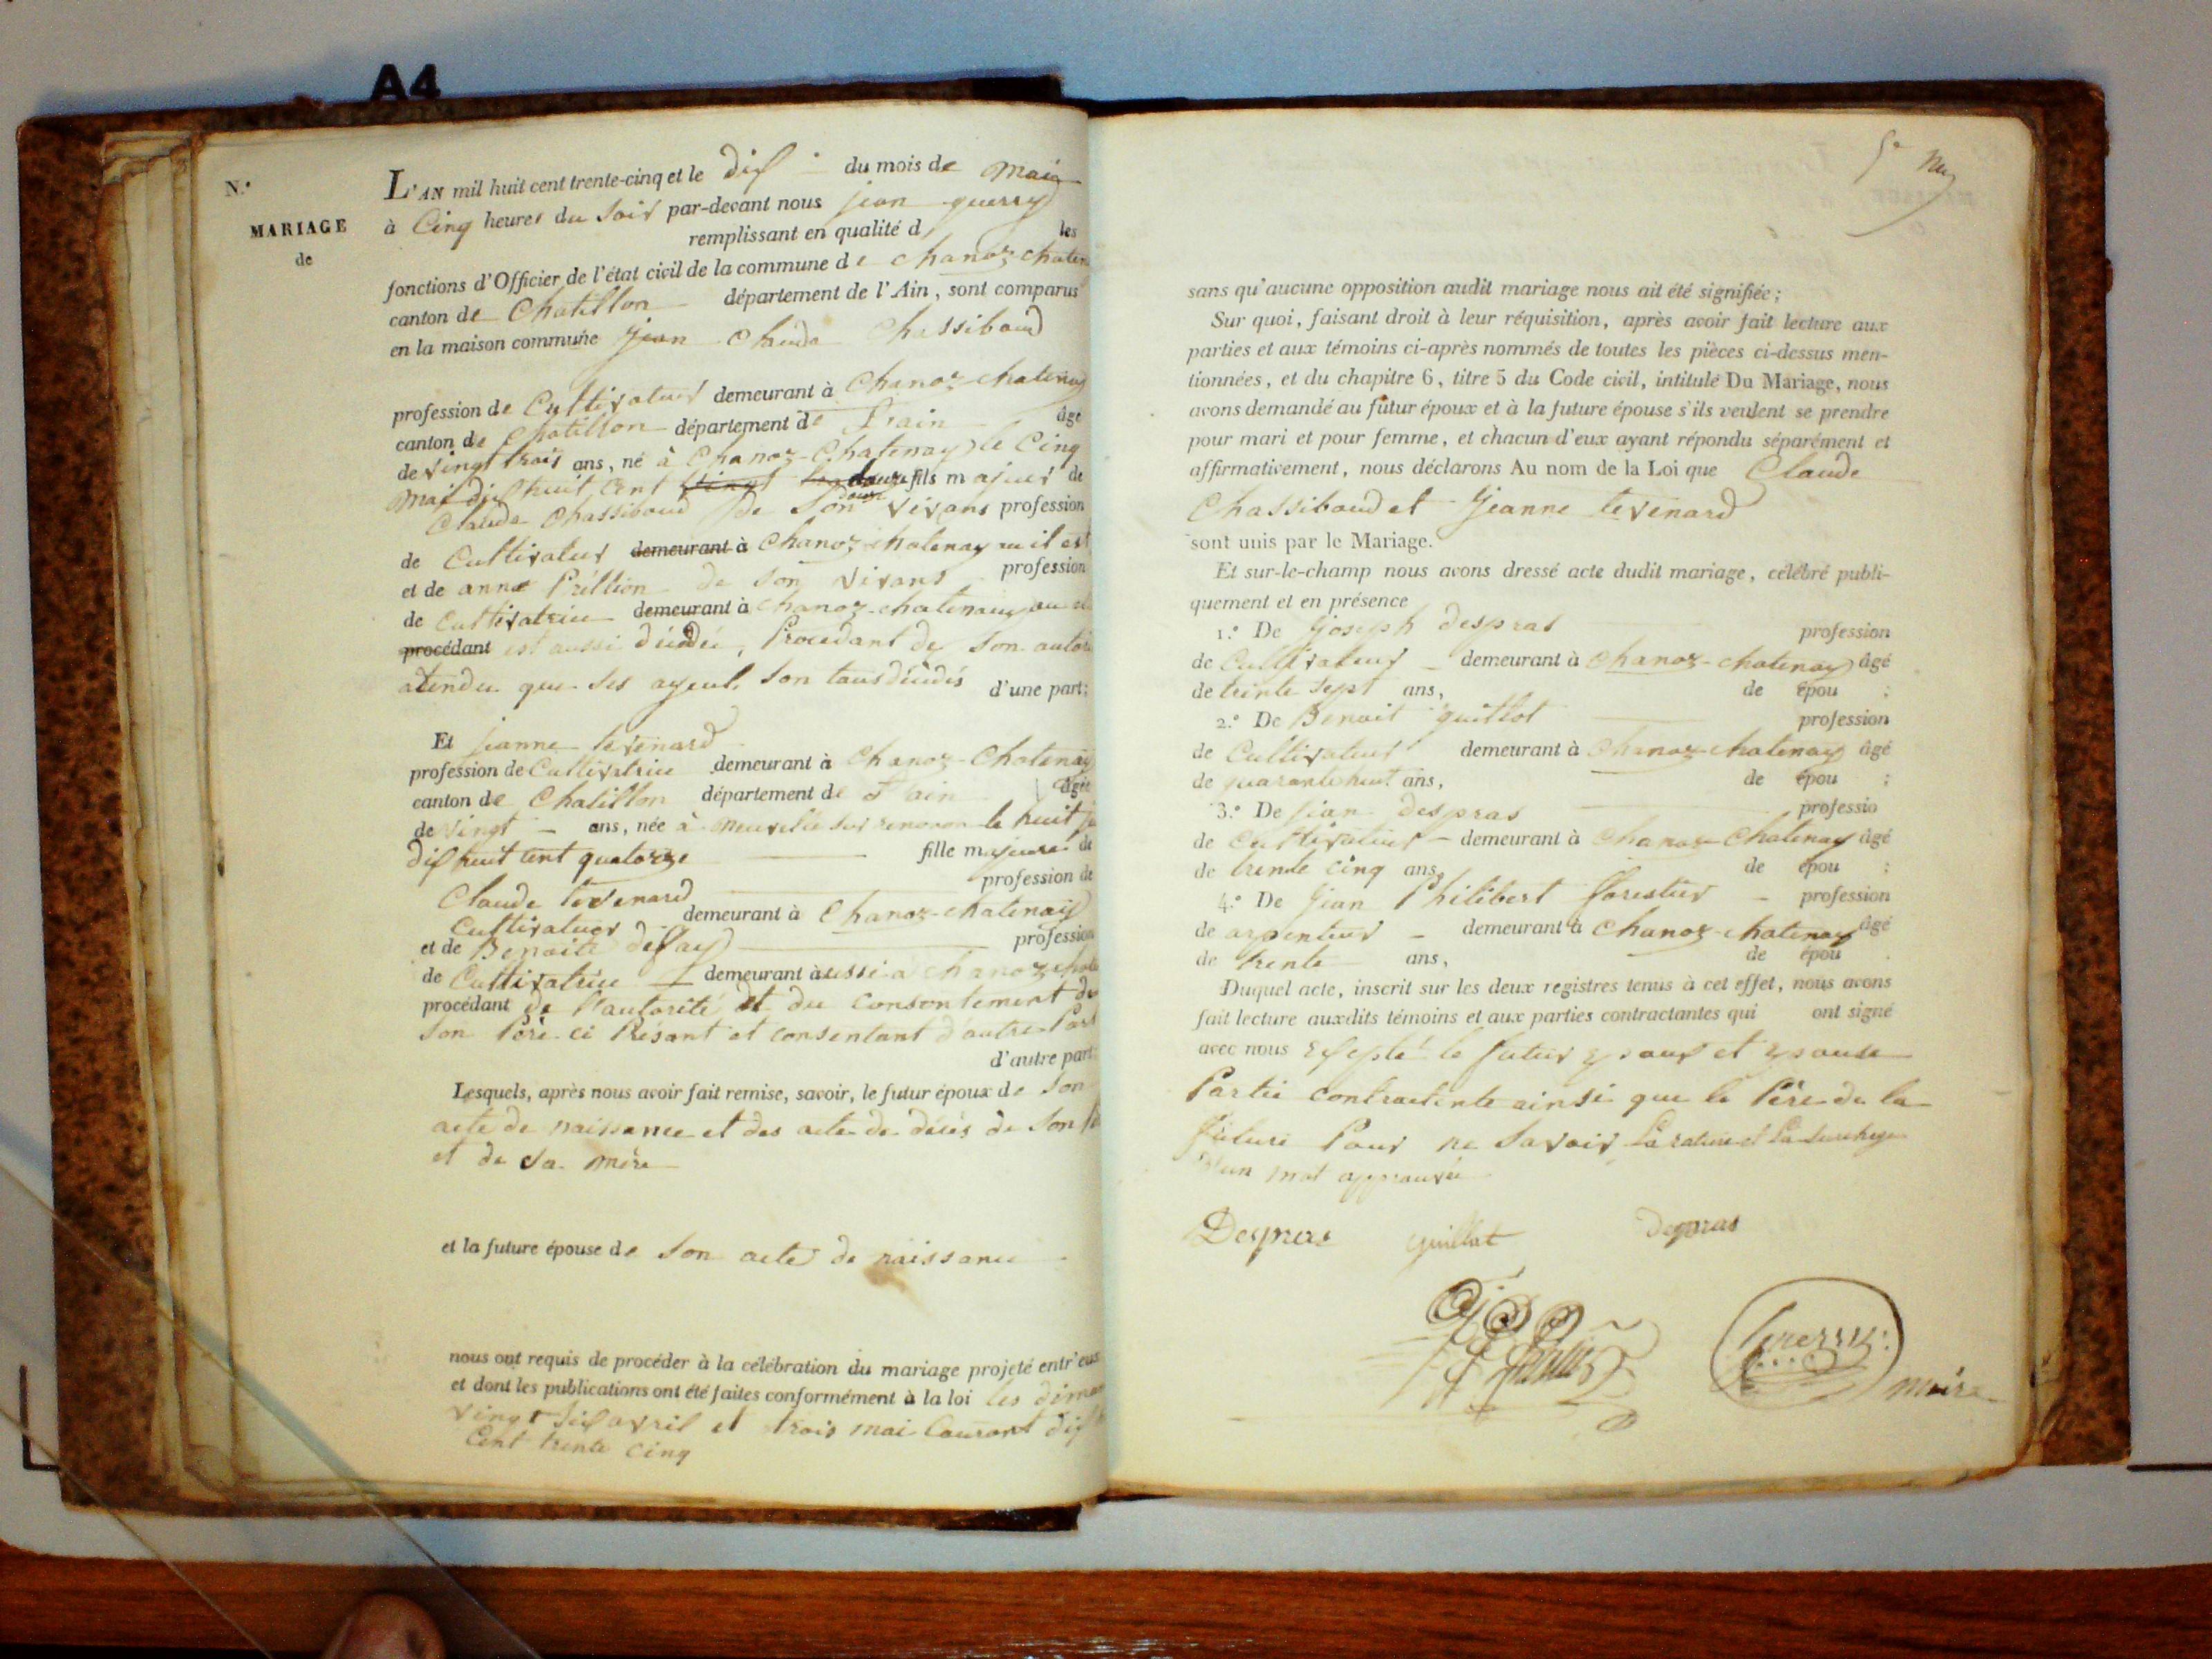 A4
N.°
MARIAGE
de
L'AN mil huit cent trente-cinq et le dix du mois de mai
à Cinq heures du Soir par-devant nous jean guerry
remplissant en qualité d les
fonctions d'Officier de l'état civil de la commune de chanoz chaten
canton de Chatillon département de l'Ain, sont comparus
en la maison commune jean Claude Chassiboud
profession de Cultivateur demeurant à Chanoz chatenay
canton de Chatillon département de l'ain âgé
de vingt trois ans, né à Chanoz-Chatenay le Cinq
mai dix huit Cent douze fils majeur de
Claude Chassiboud de Son vivans profession
de Cultivateur demeurant à Chanoz chatenay ou il est
et de anne Prillion de Son vivans profession
de Cultivatrice demeurant à Chanoz-chatenay ou
procédant est aussi Procédant de Son
atendu que Ses ayeul Son tous d'une part;
Et jeanne tevenard
profession de Cultivatrice demeurant à Chanoz-Chatenay
canton de Chatillon département de l'ain âgée
de vingt ans, née à le huit
dix huit cent quatorze fille majeure de
Claude tevenard profession de
Cultivateur demeurant à Chanoz-chatenay
et de Benoite profession
de Cultivatrice demeurant à aussi a chanoz
procédant de l'autorité et du consentement de
Son Père ci Présant et consentant d'autre Part
d'autre part;
Lesquels, après nous avoir fait remise, savoir, le futur époux de Son
acte de naissance et des acte de décés de Son
et de Sa mère
et la future épouse de Son acte de naissance
nous ont requis de procéder à la célébration du mariage projeté entr'eux
et dont les publications ont été faites conformément à la loi les
vingt Six avril et trois mai Courant dix
Cent trente cinq
sans qu'aucune opposition audit mariage nous ait été signifiée;
Sur quoi, faisant droit à leur réquisition, après avoir fait lecture aux
parties et aux témoins ci-après nommés de toutes les pièces ci-dessus men-
tionnées, et du chapitre 6, titre 5 du Code civil, intitulé Du Mariage, nous
avons demandé au futur époux et à la future épouse s'ils veulent se prendre
pour mari et pour femme, et chacun d'eux ayant répondu séparément et
affirmativement, nous déclarons Au nom de la Loi que Claude
Chassiboud et Jeanne tevenard
sont unis par le Mariage.
Et sur-le-champ nous avons dressé acte dudit mariage, célébré publi-
quement et en présence
1.° De joseph despras profession
de Cultivateur demeurant à Chanoz-chatenay âgé
de trente Sept ans, de épou ;
2.° De Benoit guillot profession
de Cultivateur demeurant à Chanoz-chatenay âgé
de quarante huit ans, de épou ;
3.° De jean despras professio
de Cultivateur demeurant à Chanoz Chatenay âgé
de trente cinq ans, de épou ;
4.° De jean Philibert forestier profession
de arpenteur demeurant à Chanoz-chatenay âgé
de trente ans, de épou
Duquel acte, inscrit sur les deux registres tenus à cet effet, nous avons
fait lecture auxdits témoins et aux parties contractantes qui ont signé
avec nous le futur et
Partie contractente ainsi que le Père de la
future Pour ne Savoir La rature et La
D'un mot approuvée
Despras guillot despras
maire